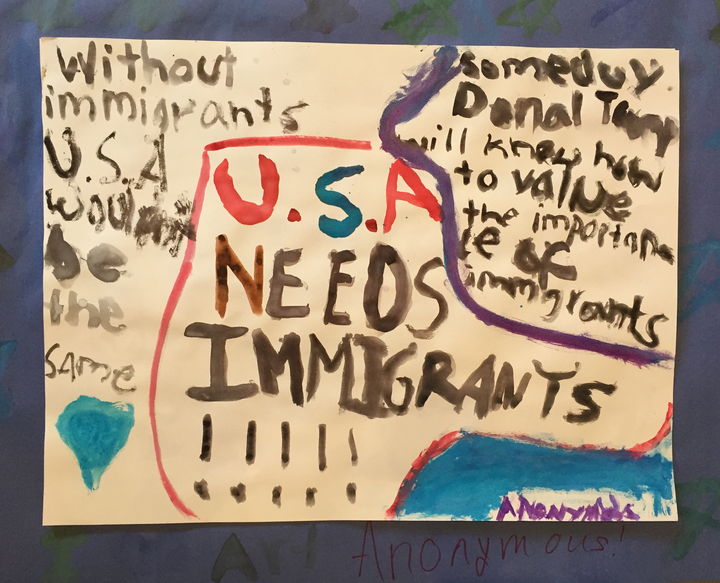 Without
immigrants
U.S.A
wouldn't
be
the
same
U.S.A
NEEDS
IMMIGRANTS
!!!!!
someday
Donal Trump
will knew how
to value
the importan
ce of
immigrants
Anonymous
Anonymous!